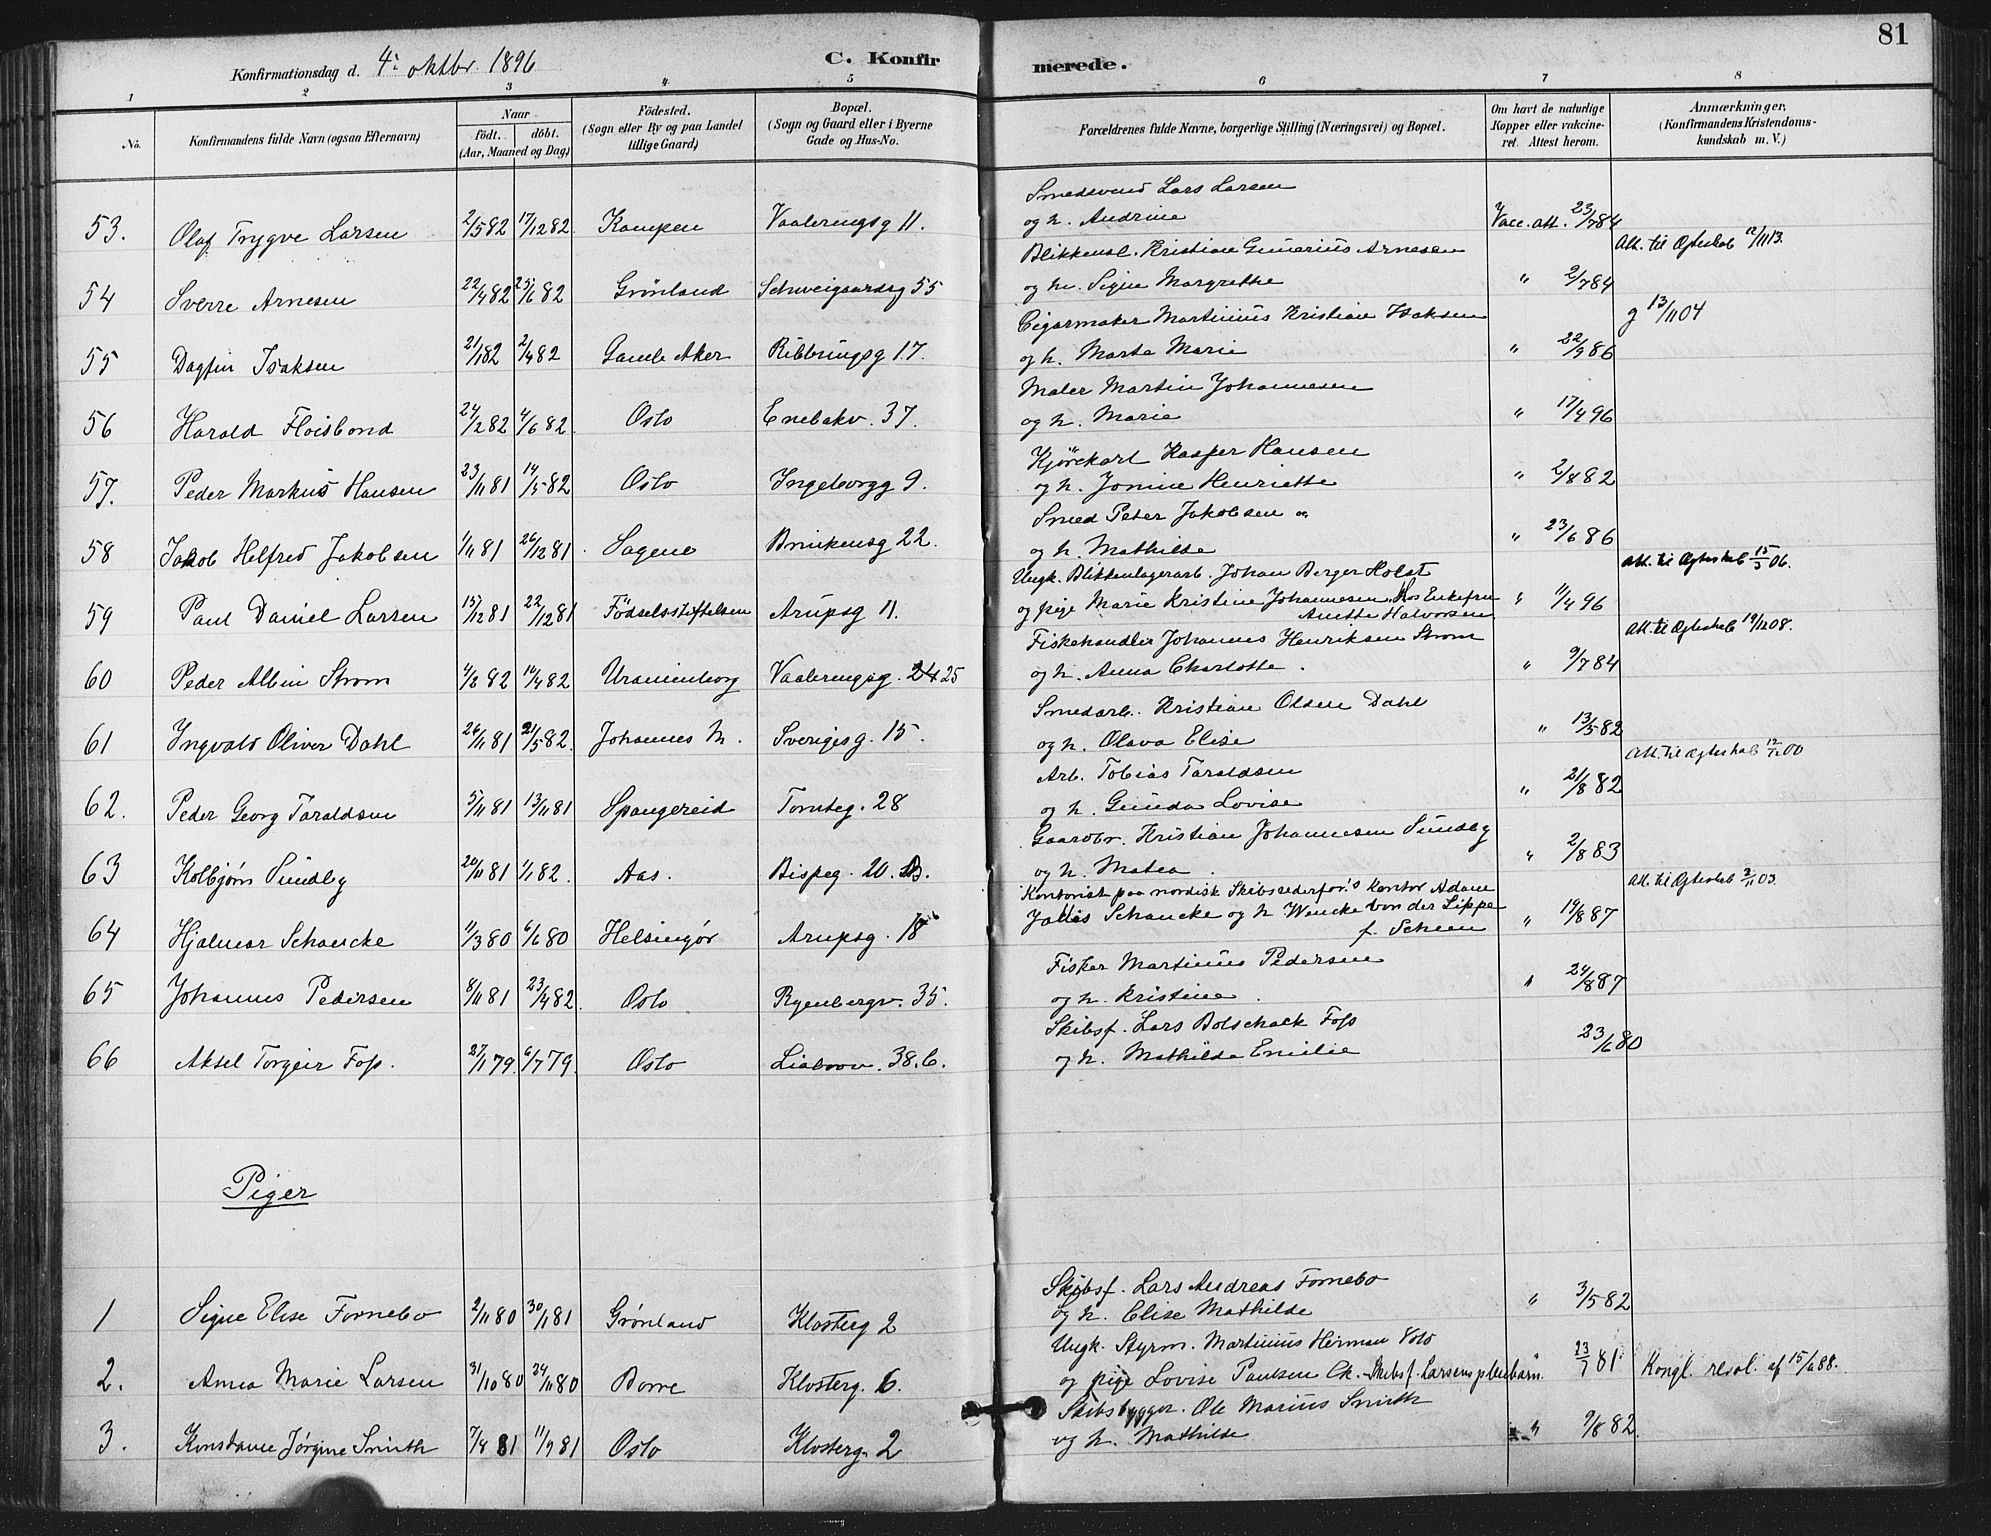 81
Konfirmationsdag d. 4: oktbr 1896 C. Konfirmerede.
1 2 3 4 5 6 7 8
No. Konfirmandens fulde Navn (ogsaa Efternavn) Naar født. døbt. (Aar, Maaned og Dag) Födested. (Sogn eller By og paa Landet tillige Gaard) Bopæl. (Sogn og Gaard eller i Byerne Gade og Hus-No. Forældrenes fulde Navne, borgerlige Stilling (Næringsvei) og Bopæl. Om havt de naturlige Kopper eller vakcineret. Attest herom. Anmærkninger. (Konfirmandens Kristendomskundskab m. V.)
Smedsvend Lars Larsen
53. Olaf Trygve Larsen 2/5 82 17/12 82 Kampen Vaaleringsg 11. og h. Andrine Vacc. att. 23/7 84
Att. til Ægteskab 12/11 13.
Blikkensl. Kristian Gunerius Arnesen
54 Sverre Arnesen 22/4 82 25/6 82 Grönland Schweigaardsg 55 og h. Signe Margrethe " 2/7 84
g 13/11 04
Cigarmaker Martinius Kristian Isaksen
55 Dagfin Isaksen 21/1 82 2/4 82 Gamle Aker Ribbrungsg 17. og h. Marta Marie " 22/9 86
Maler Martin Johannesen
56 Harald Floisbond 24/2 82 4/6 82 Oslo Enebakv. 37. og h. Marie " 17/4 96
Kjørekarl Kasper Hansen
57. Peder Markus Hansen 23/11 81 14/5 82 Oslo Ingeborgg 9. og h. Jonine Henriette " 2/8 82
Smed Peter Jakobsen
58 Jakob Helfred Jakobsen 1/11 81 26/12 81 Sagene Brinkensg 22. og h. Mathilde " 23/6 86
Att. til Ægteskab 15/5 06.
Ungk. Blikkenlagerarb. Johan Berger Holst
59 Paul Daniel Larsen 15/12 81 22/12 81 Födselsstiftelsen Arupsg 11. og pige Marie Kristine Johannesen, hos Enkefru " 11/4 96
Anette Halvorsen
Att. til Ægteskab 19/12 08.
Fiskehandler Johannes Henriksen Strom
60 Peder Albin Strom 4/2 82 14/4 82 Uranienborg Vaaleringsg. 24 25 og h. Anna Charlotte. " 9/7 84
Smedarb. Kristian Olsen Dahl
61 Ingvald Oliver Dahl 26/11 81 21/5 82. Johannes M. Sverigesg. 15. og h. Olava Elise " 13/5 82
Att. til Ægteskab 12/12 00
Arb. Tobias Taraldsen
62. Peder Georg Taraldsen 5/11 81 13/11 81 Spangereid Tomteg. 28 og h. Gunda Lovise " 21/8 82
Gaardbr. Kristian Johannesen Sundby
63 Kolbjørn Sundby 20/11 81 1/1 82. Aas. Bispeg. 20. B. og h. Matea. " 2/8 83
Att. til Ægteskab 3/11 03.
Kontorist paa nordisk Skibsrederfor.s Kontor Adam
64 Hjalmar Schancke 11/3 80 6/6 80 Helsingør Arupsg. 18 Schancke og h Wencke von der Lippe " 19/8 87
f.
Fisker Martinius Pedersen
65 Johannes Pedersen 8/11 81 23/4 82. Oslo Ryenbergv. 35. og h. Kristine. " 24/8 87
Skibsf. Lars Bolschack Foss
66 Aksel Torgeir Foss. 27/1 79. 6/7 79. Oslo Liabrov. 38.6. og h. Mathilde Emilie 23/6 80
Piger
Skibsf. Lars Andreas Fornebo
1 Signe Elise Fornebo 2/11 80 30/1 81 Grønland Klosterg 2 og h. Elise Mathilde " 3/5 82
Ungk. Styrm. Martinius Herman
2. Anna Marie Larsen 31/10 80 24/11 80 Borre Klosterg. 6. og pige Lovise Paulsen Skibsf. Larsens pleiebarn 23/7 81 Kongl. resol. af 15/6 88.
Skibsbygger. Ole Marius Smith
3. Konstance Jørgine Smith 7/4 81 11/9 81 Oslo Klosterg. 2 og h. Mathilde " 9/8 82.